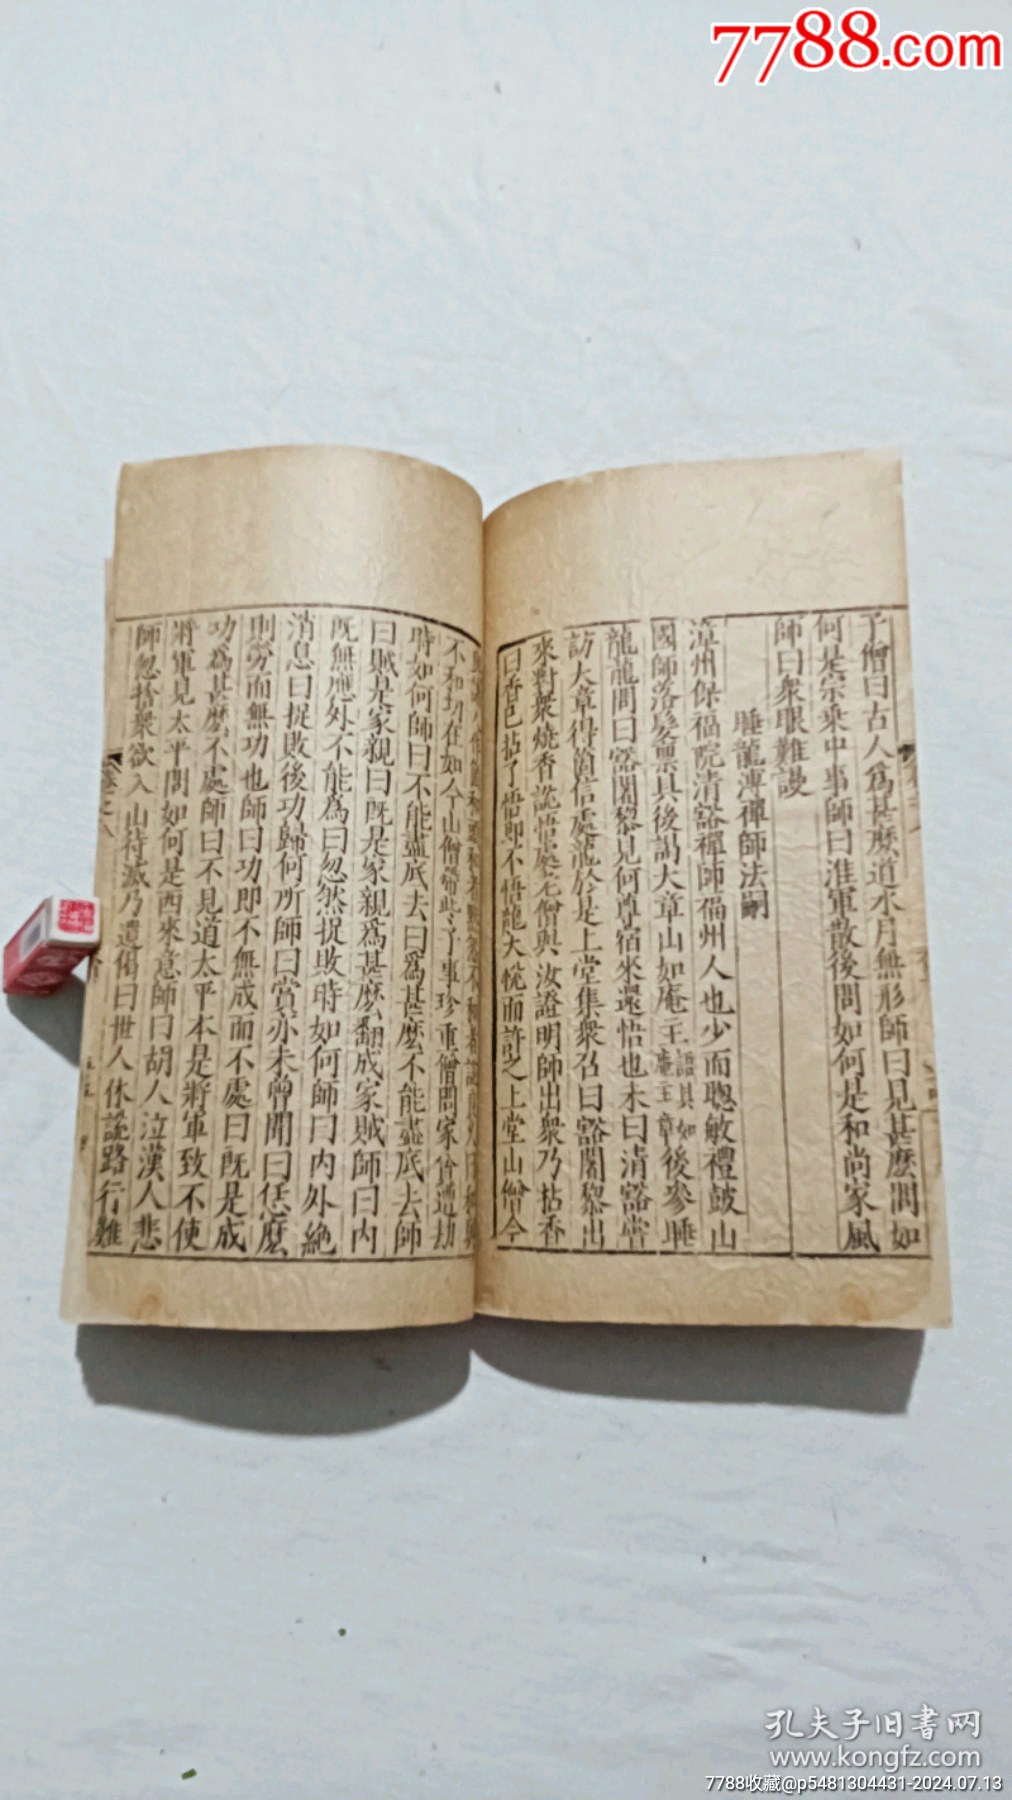 7788.com
子僧曰古人爲甚麽道水月無形師曰見甚麽問如
何是宗乘中事師曰淮軍散後問如何是和尚家風
師曰衆眼難謾
睡龍溥禪師法嗣
漳州保福院清豁禪師福州人也少而聰敏禮鼓山
國師落髮稟具後謁大章山如庵主語具如庵主章後參睡
龍龍問曰豁闍黎見何尊宿來還悟也未曰清豁嘗
訪大章得箇信處龍於是上堂集衆召曰豁闍黎出
來對衆燒香說悟處老僧與汝證明師出衆乃拈香
曰香已拈了悟即不悟龍大悅而許之上堂山僧今
不和切在如今山僧帶此子事珍重僧問家貧遭劫
時如何師曰不能盡底去曰爲甚麽不能盡底去師
曰賊是家親曰既是家親爲甚麽翻成家賊師曰內
既無應外不能爲曰忽然捉敗時如何師曰內外絕
消息曰捉敗後功歸何所師曰賞亦未曾聞曰恁麽
則勞而無功也師曰功即不無成而不處曰既是成
功爲甚麽不處師曰不見道太平本是將軍致不使
將軍見太平問如何是西來意師曰胡人泣漢人悲
師忽捨衆欲入山待滅乃遺偈曰世人休說路行難
孔夫子旧書网
www.kongfz.com
7788收藏@p5481304431-2024.07.13